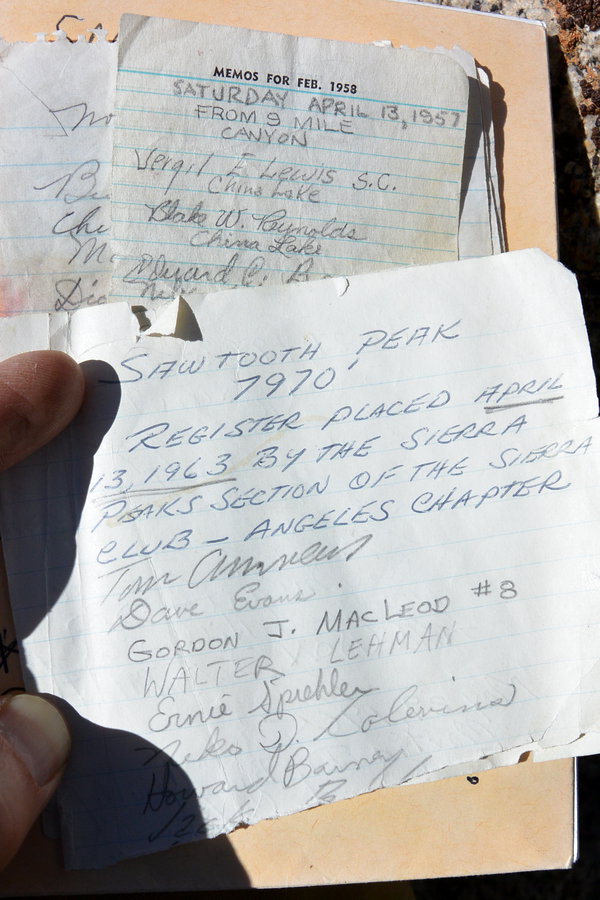 MEMOS FOR FEB. 1958
SATURDAY APRIL 13, 1957
FROM 9 MILE
CANYON
Vergil E Lewis S.C.
China Lake
Blake W. Reynolds
China Lake
SAWTOOTH PEAK
7970'
REGISTER PLACED APRIL
13, 1963 BY THE SIERRA
PEAKS SECTION OF THE SIERRA
CLUB - ANGELES CHAPTER
Tom Amneus
Dave Evans
GORDON J. MACLEOD #8
WALTER LEHMAN
Ernie Spiehler
Howard Barney